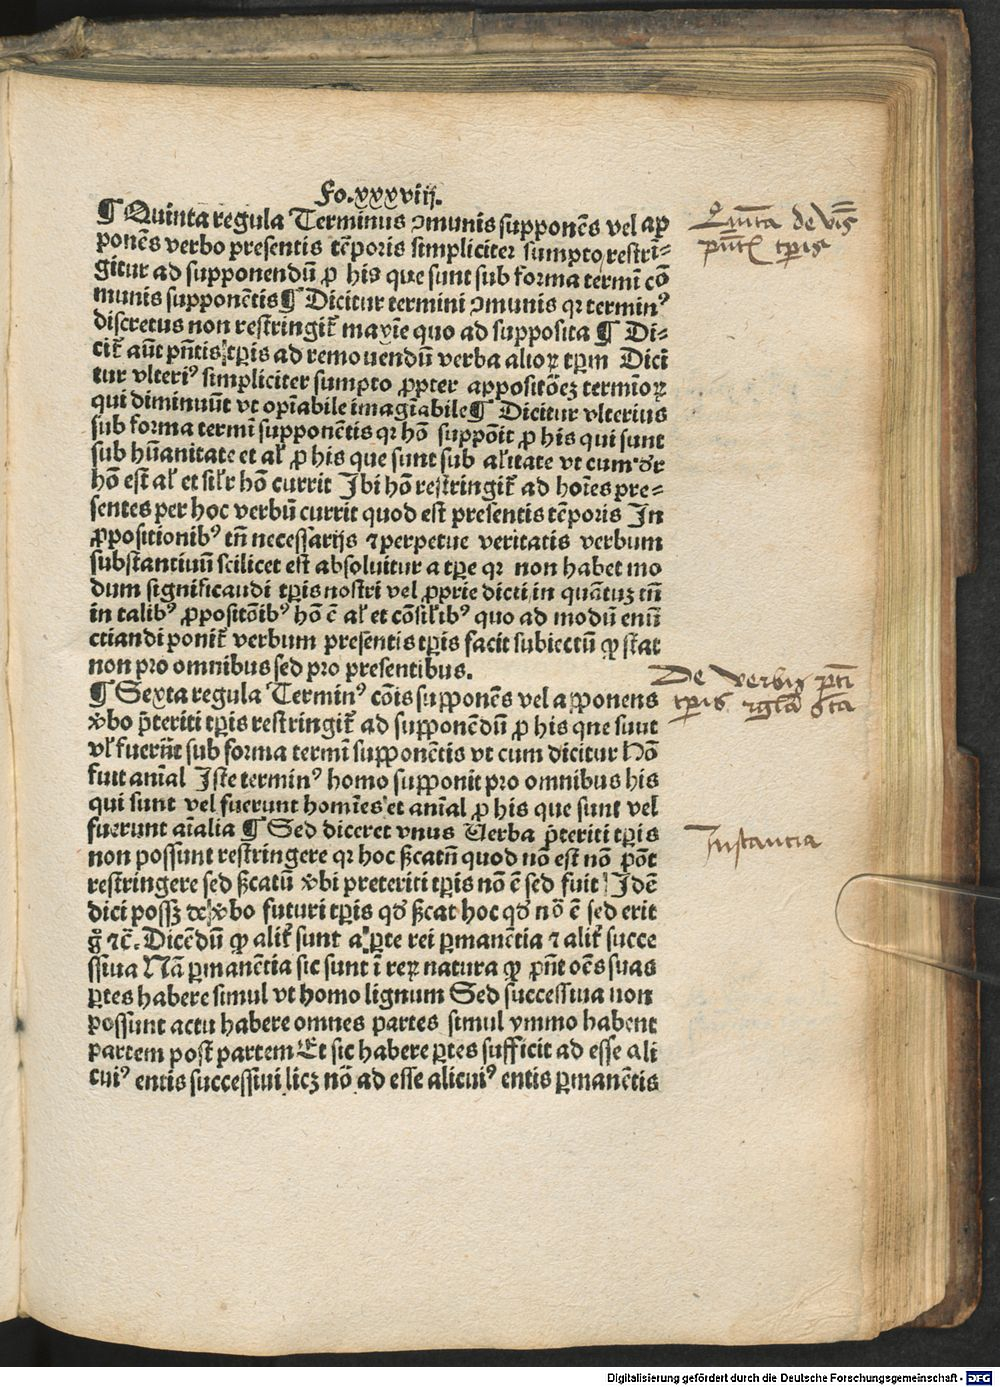 Fo.xxxviij.
¶ Quinta regula Terminus ꝯmunis supponēs vel ap
ponēs verbo presentis tēporis simpliciter sumpto restri-
gitur ad supponendū ꝓ his que sunt sub forma termī cō
munis supponētis ¶ Dicitur termini ꝯmunis qꝛ terminꝰ
discretus non restringit̄ maxīe quo ad supposita ¶ Di-
cit̄ aūt pn̄tis tꝑis ad remouendū verba alioꝝ tꝑm Dici
tur vlteriꝰ simpliciter sumpto ꝓpter appositōeꝫ termīoꝝ
qui diminuūt vt opīabile imagīabile ¶ Dicitur vlterius
sub forma termī supponētis qꝛ hō suppōit ꝓ his qui sunt
sub hūanitate et al̄ ꝓ his que sunt sub al̄itate vt cum dr̄
hō est al̄ et sil̄r hō currit Ibi hō restringit̄ ad hoīes pre-
sentes per hoc verbū currit quod est presentis tēporis In
ꝓpositionibꝰ tn̄ necessarijs ⁊ perpetue veritatis verbum
substantiuū scilicet est absoluitur a tꝑe qꝛ non habet mo
dum significandi tꝑis nostri vel ꝓprie dicti in quātuꝫ tn̄
in talibꝰ ꝓpositōibꝰ hō ē al̄ et cōsil̄ibꝰ quo ad modū enū
ctiandi ponit̄ verbum presentis tꝑis facit subiectū ꝙ stat
non pro omnibus sed pro presentibus.
¶ Sexta regula Terminꝰ cōis supponēs vel apponens
v̓bo p̄teriti tꝑis restringit̄ ad supponēdū ꝓ his qne sunt
vl̄ fuerūt sub forma termī supponētis vt cum dicitur Hō
fuit anīal Iste terminꝰ homo supponit pro omnibus his
qui sunt vel fuerunt homīes et anīal ꝓ his que sunt vel
fuerunt aīalia ¶ Sed diceret vnus Verba p̄teriti tꝑis
non possunt restringere qꝛ hoc ẜcatū quod nō est nō pōt
restringere sed ẜcatū v̓bi preteriti tꝑis nō ē sed fuit Idē
dici possꝫ de v̓bo futuri tꝑis qd̓ ẜcat hoc qd̓ nō ē sed erit
gͦ ⁊c̄. Dicēdū ꝙ aliq̄ sunt a ꝑte rei ꝑmanētia ⁊ aliq̄ succe
ssiua Nā ꝑmanētia sic sunt ī reꝝ natura ꝙ pn̄t oēs suas
ꝑtes habere simul vt homo lignum Sed successiua non
possunt actu habere omnes partes simul ymmo habent
partem post partem Et sic habere ꝑtes sufficit ad esse ali
cuiꝰ entis successiui licꝫ nō ad esse alicuiꝰ entis ꝑmanētis
Quīta de v̄is
pn̄t tꝑis
De verbis p̄ti
tꝑis rgl̄a 6ta
Instantia
Digitalisierung gefördert durch die Deutsche Forschungsgemeinschaft - DFG